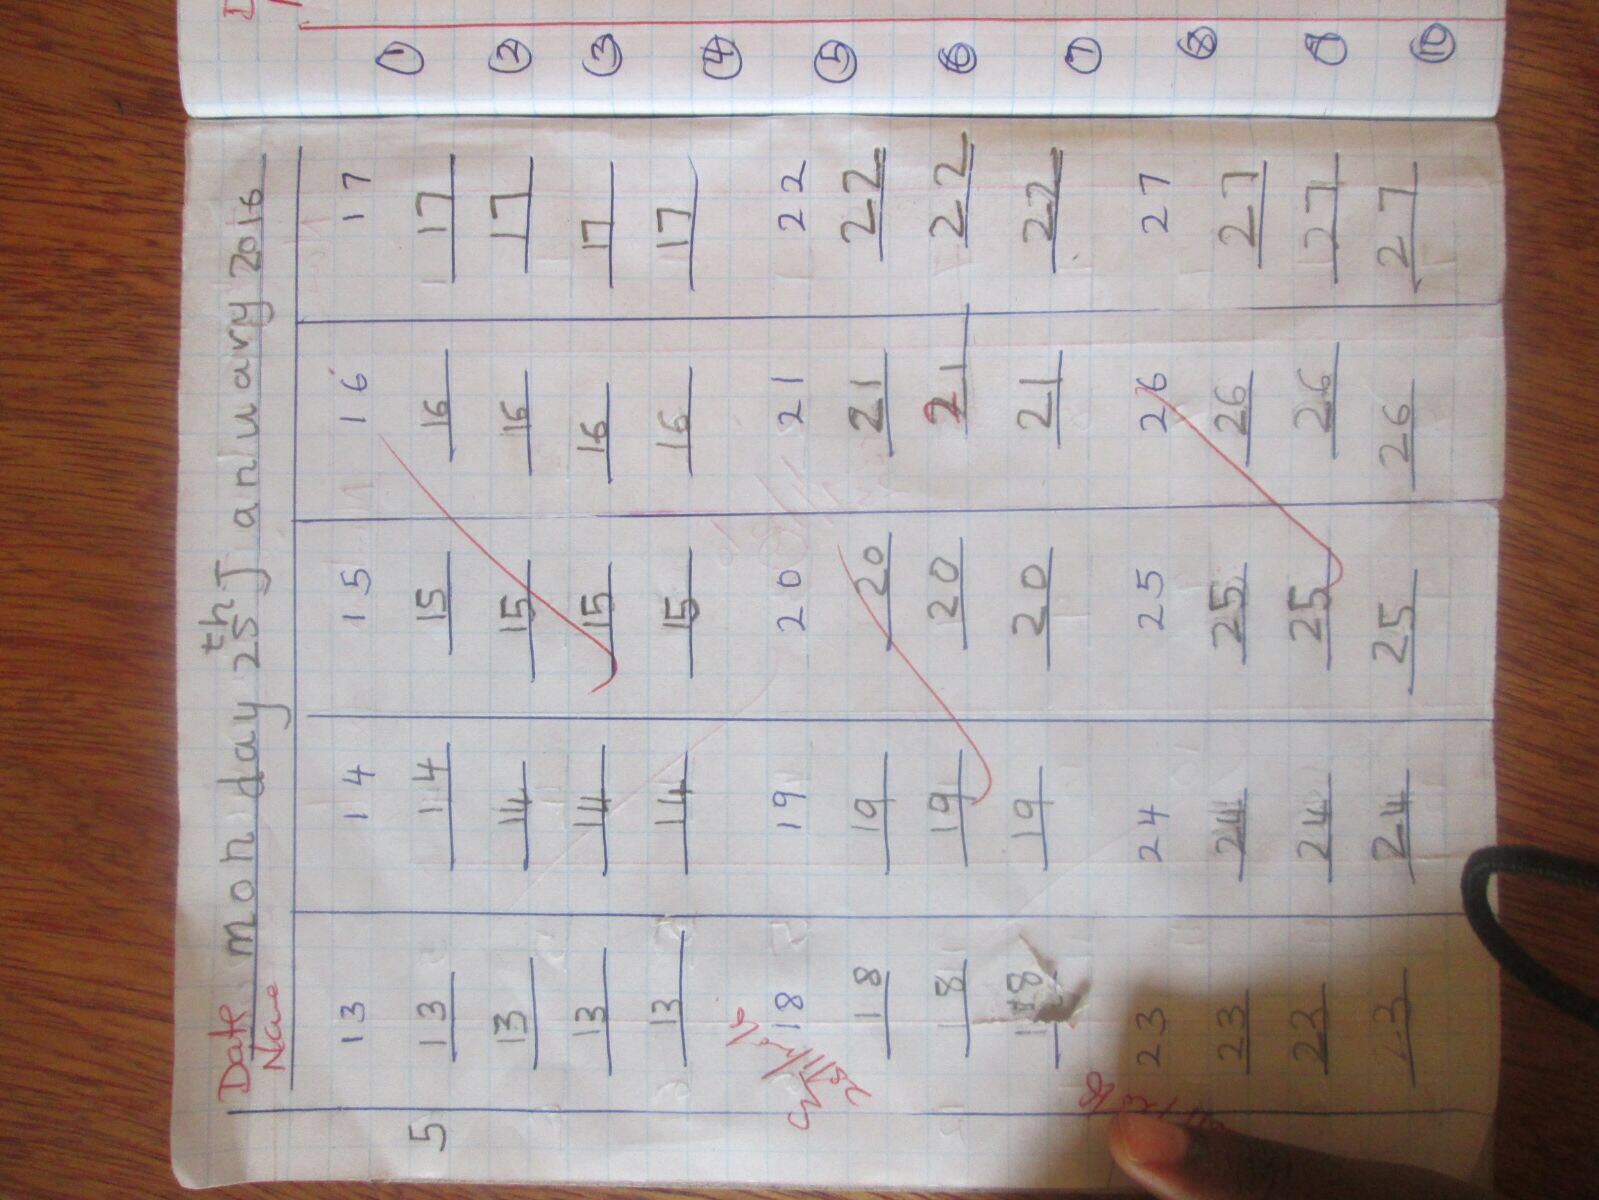 Date monday 25th January 2016
Name
13 14 15 16 17
5 13 14 15 16 17
13 14 15 16 17
13 14 15 16 17
13 14 15 16 17
18 19 20 21 22
18 19 20 21 22
18 19 20 21 22
18 19 20 21 22
23 24 25 26 27
23 24 25 26 27
23 24 25 26 27
23 24 25 26 27
1
2
3
4
5
6
7
8
9
10